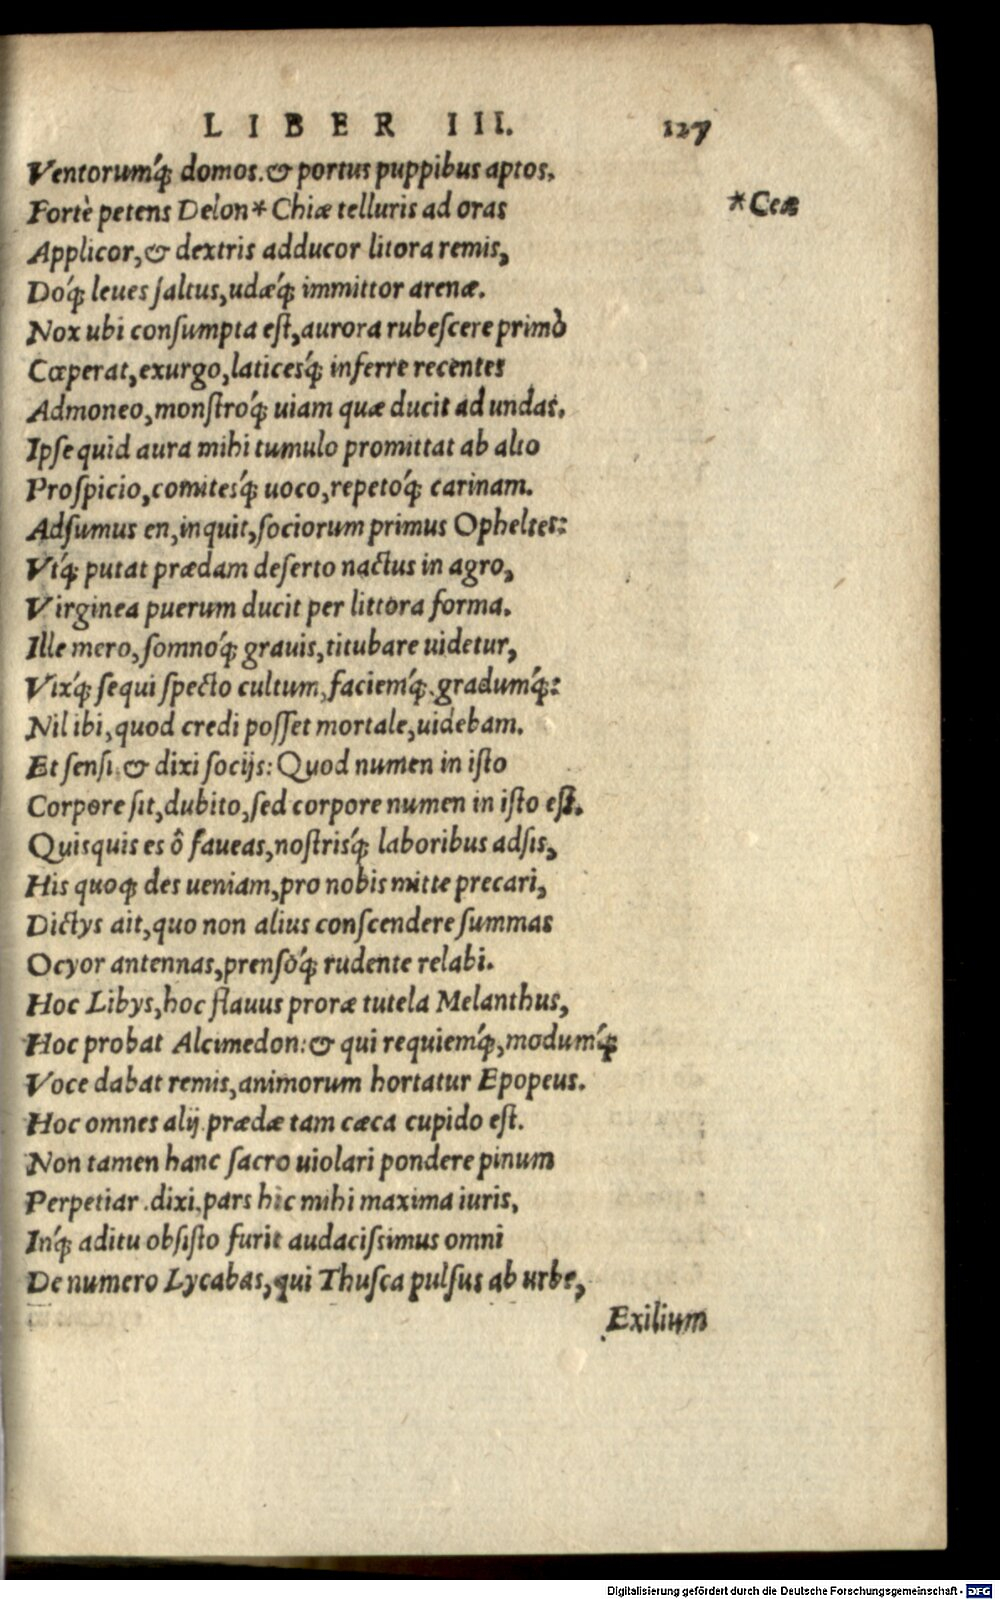 LIBER III. 127
Ventorumq́; domos. & portus puppibus aptos.
Fortè petens Delon * Chiæ telluris ad oras *Ceæ
Applicor, & dextris adducor litora remis,
Doq́; leues ſaltus, udæq́; immittor arenæ.
Nox ubi conſumpta eſt, aurora rubeſcere primò
Cœperat, exurgo, laticesq́; inferre recentes
Admoneo, monſtroq́; uiam quæ ducit ad undas.
Ipſe quid aura mihi tumulo promittat ab alto
Proſpicio, comitesq́; uoco, repetoq́; carinam.
Adſumus en, inquit, ſociorum primus Opheltes:
Vtq́; putat prædam deſerto nactus in agro,
Virginea puerum ducit per littora forma.
Ille mero, ſomnoq́; grauis, titubare uidetur,
Vixq́; ſequi ſpecto cultum, faciemq́;, gradumq́;:
Nil ibi, quod credi poſſet mortale, uidebam.
Et ſenſi. & dixi ſocijs: Quod numen in iſto
Corpore ſit, dubito, ſed corpore numen in iſto eſt.
Quisquis es ô faueas, noſtrisq́; laboribus adſis,
His quoq; des ueniam, pro nobis mitte precari,
Dictys ait, quo non alius conſcendere ſummas
Ocyor antennas, prenſoq́; rudente relabi.
Hoc Libys, hoc flauus proræ tutela Melanthus,
Hoc probat Alcimedon: & qui requiemq́;, modumq́;
Voce dabat remis, animorum hortatur Epopeus.
Hoc omnes alij. prædæ tam cæca cupido eſt.
Non tamen hanc ſacro uiolari pondere pinum
Perpetiar. dixi. pars hic mihi maxima iuris,
Inq́; aditu obſiſto furit audaciſsimus omni
De numero Lycabas, qui Thuſca pulſus ab urbe,
Exilium
Digitalisierung gefördert durch die Deutsche Forschungsgemeinschaft - DFG